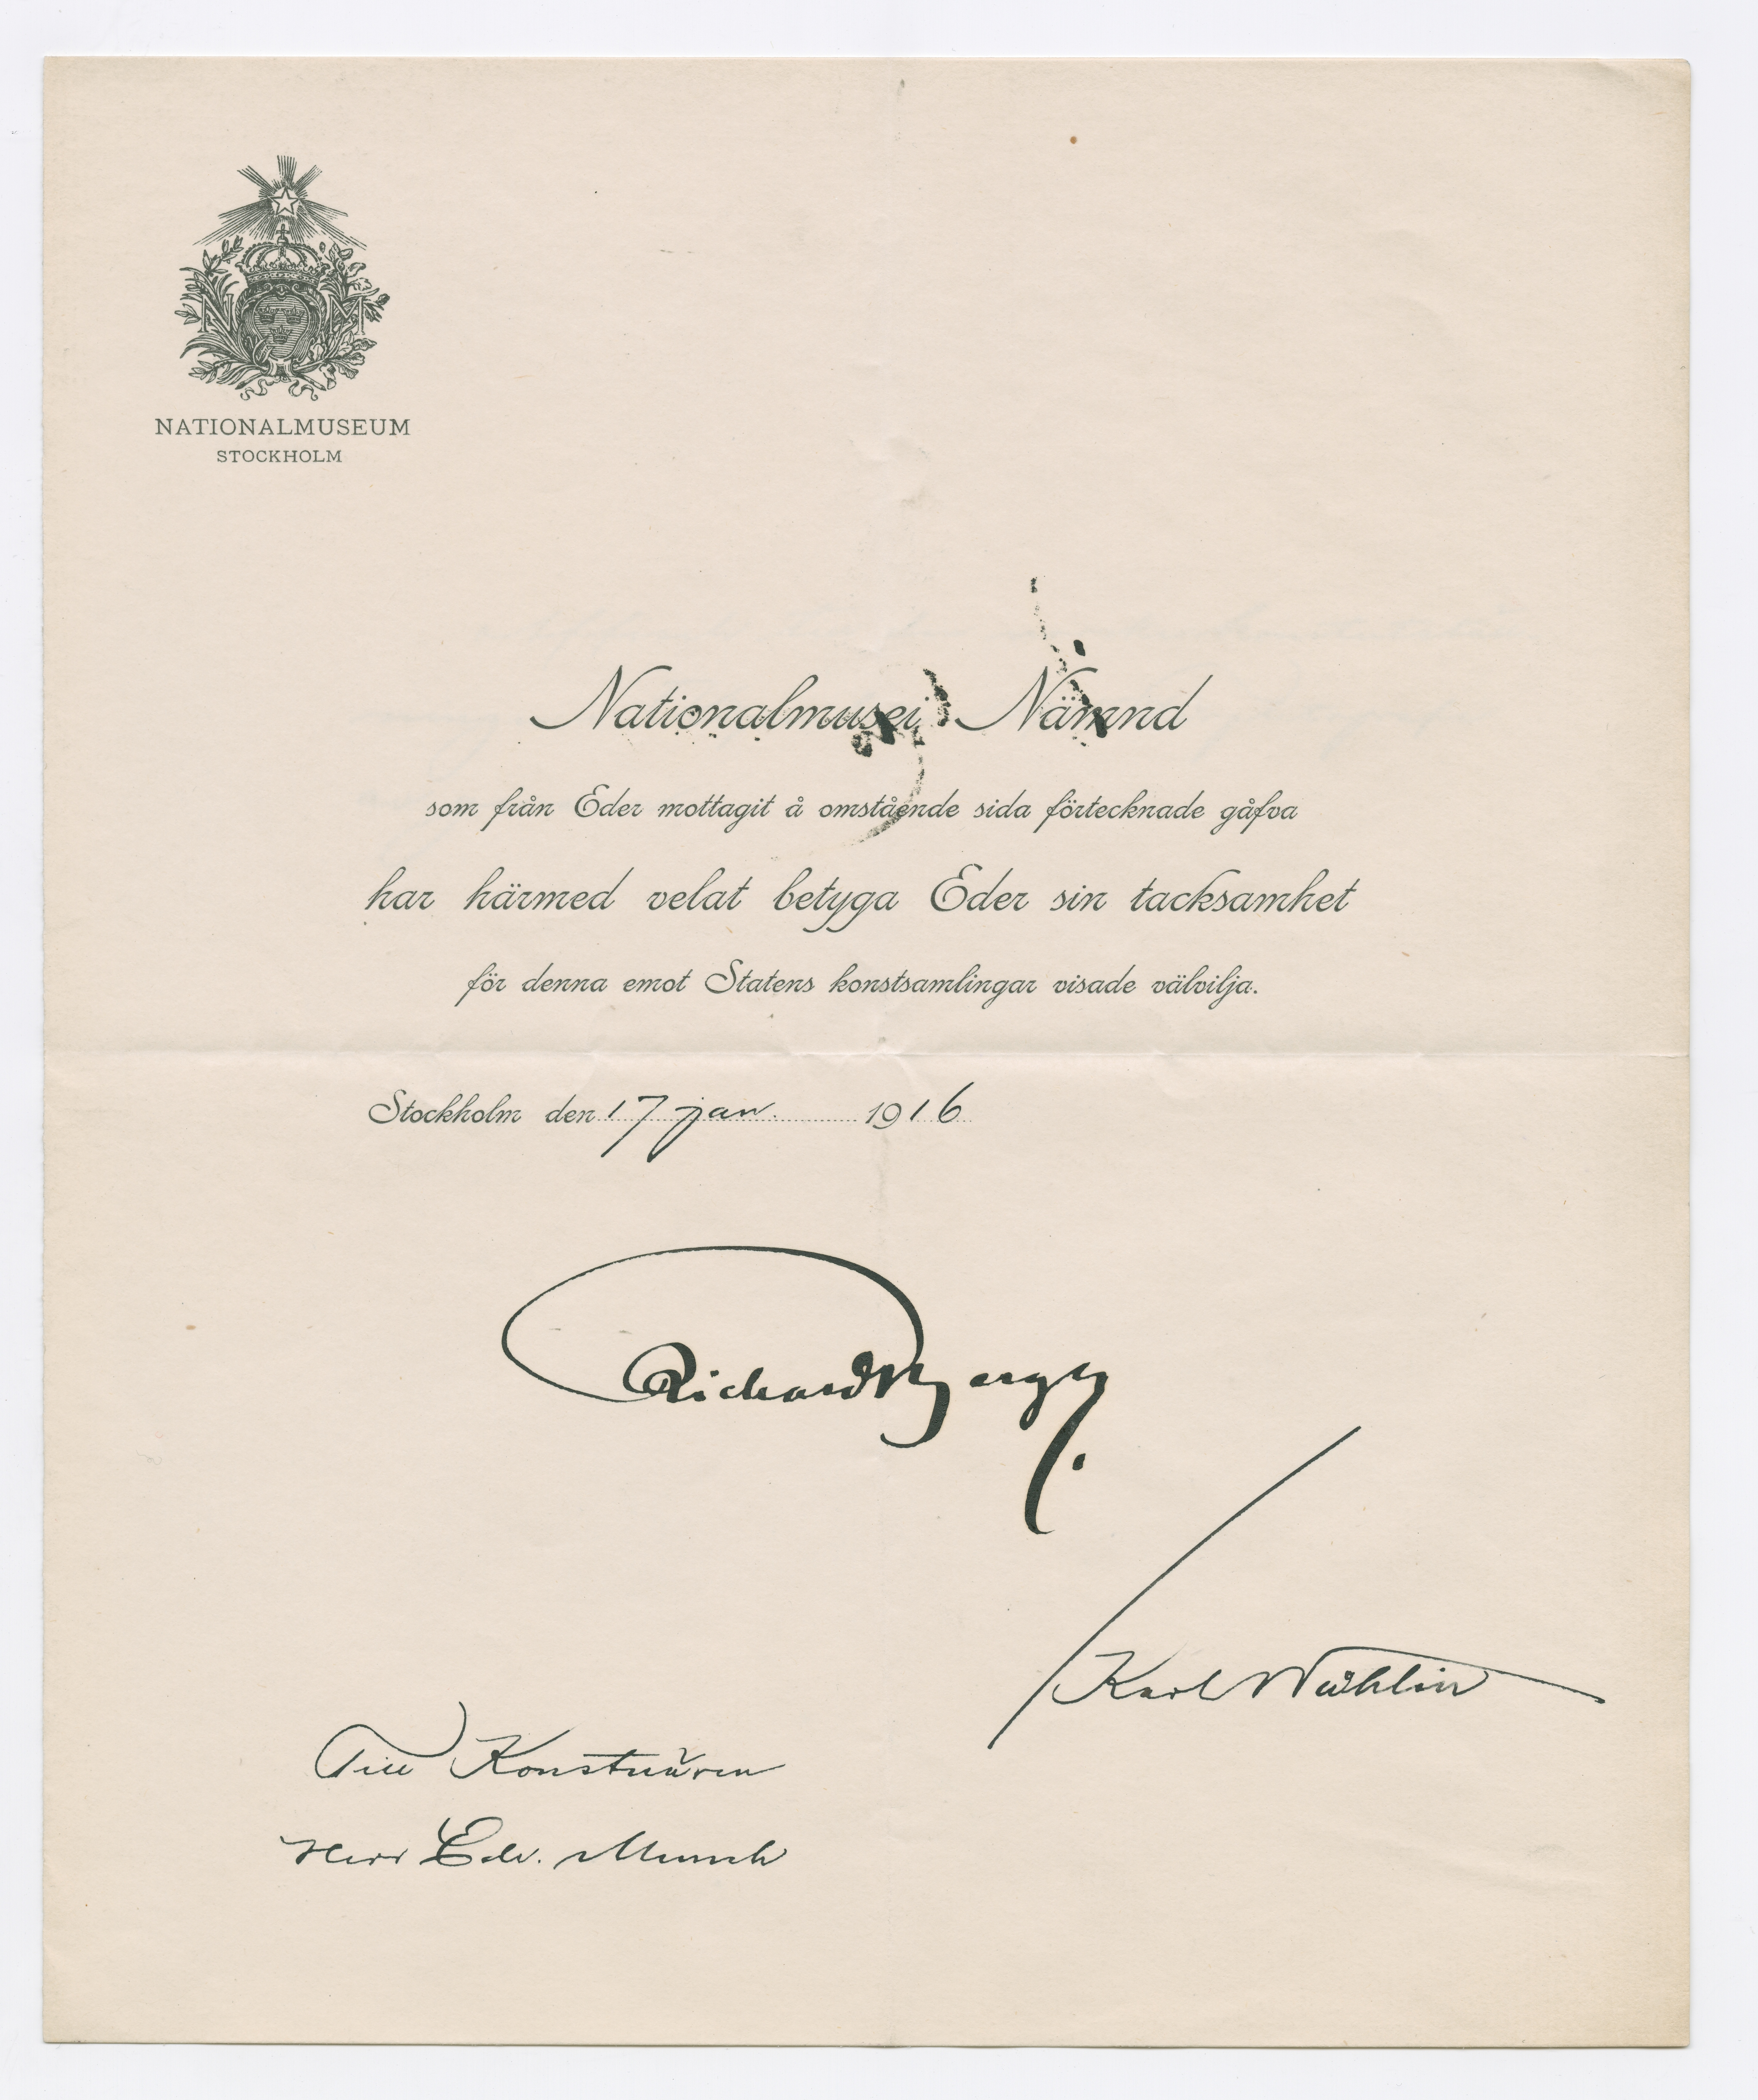 N M
NATIONALMUSEUM
STOCKHOLM
Nationalmusei Nämnd
som från Eder mottagit å omstående sida förtecknade gåfva
har härmed velat betyga Eder sin tacksamhet
för denna emot Statens konstsamlingar visade välvilja.
Stockholm den 17 jan. 1916
Richard Bergh.
Karl Wåhlin
Till Konstnären
Herr Edv. Munch